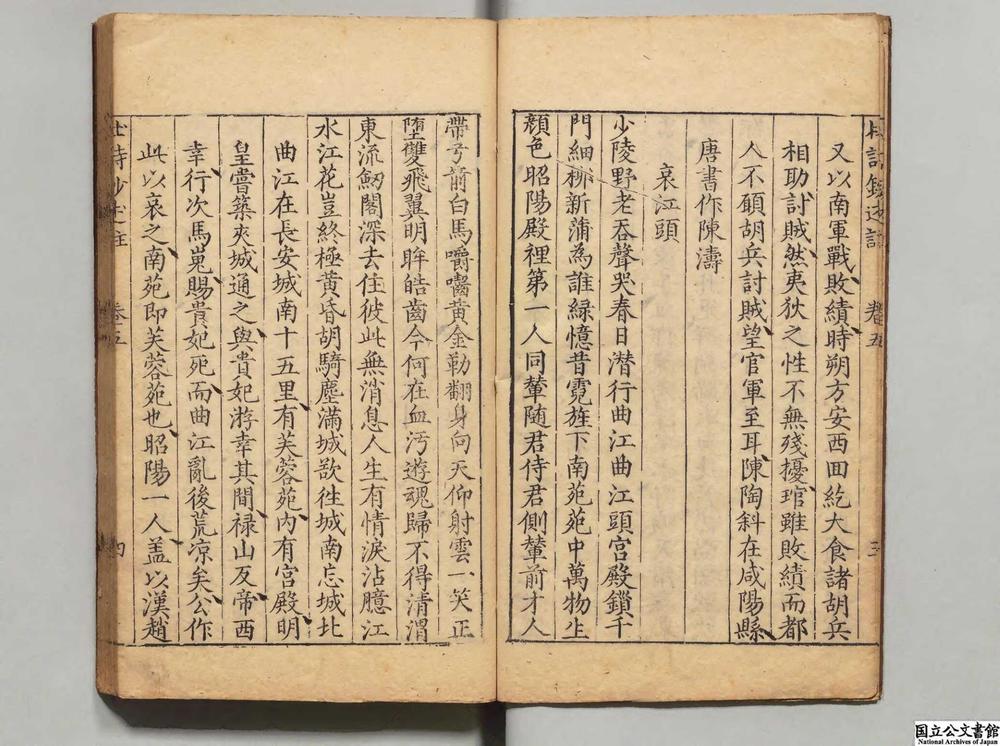 杜詩鈔述註 卷五 三
又以南軍戰敗績時朔方安西回紇大食諸胡兵
相助討賊然夷狄之性不無殘擾琯雖敗績而都
人不願胡兵討賊望官軍至耳陳陶斜在咸陽縣
唐書作陳濤
哀江頭
少陵野老吞聲哭春日潛行曲江曲江頭宮殿鎖千
門細柳新蒲為誰綠憶昔霓旌下南苑苑中萬物生
顏色昭陽殿裡第一人同輦隨君侍君側輦前才人
帶弓箭白馬嚼囓黃金勒翻身向天仰射雲一笑正
墮雙飛翼明眸皓齒今何在血汚遊魂歸不得清渭
東流劒閣深去住彼此無消息人生有情淚沾臆江
水江花豈終極黃昏胡騎塵滿城欲徃城南忘城北
曲江在長安城南十五里有芙蓉苑內有宮殿明
皇嘗築夾城通之與貴妃游幸其間祿山反帝西
幸行次馬嵬賜貴妃死而曲江亂後荒凉矣公作
此以哀之南苑即芙蓉苑也昭陽一人盖以漢趙
杜詩鈔述註 卷五 四
国立公文書館
National Archives of Japan